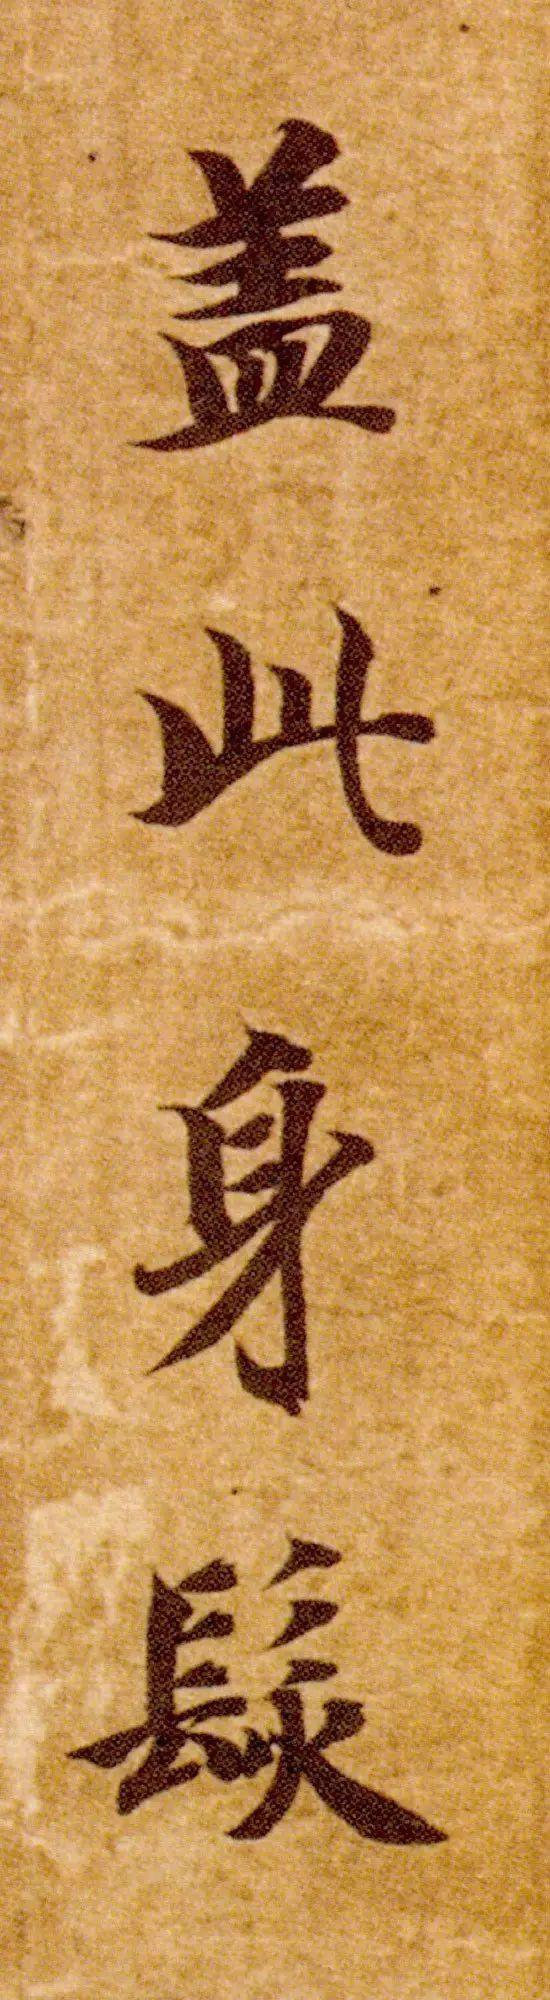 盖此身髮